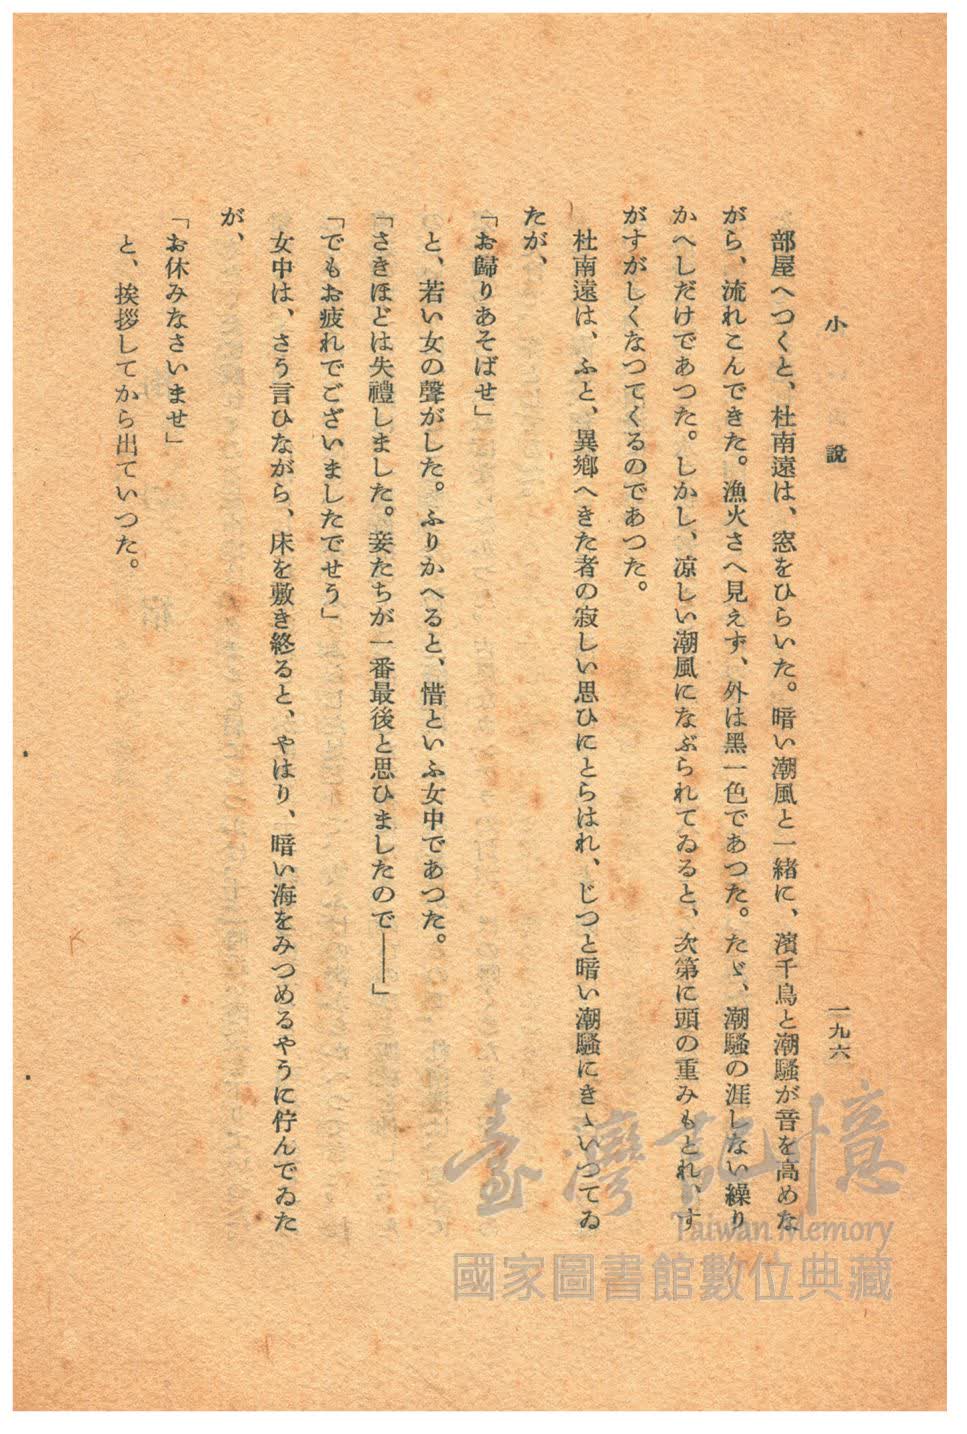 小說
一九六
部屋へつくと、杜南遠は、窓をひらいた。暗い潮風と一緒に、濱千鳥と潮騷が音を高めな
がら、流れこんできた。漁火さへ見えず、外は黑一色であつた。たゞ、潮騷の涯しない繰り
かへしだけであつた。しかし、凉しい潮風になぶられてゐると、次第に頭の重みもとれ、す
がすがしくなつてくるのであつた。
杜南遠は、ふと、異鄕へきた者の寂しい思ひにとらはれ、じつと暗い潮騷にきゝいつてゐ
たが、
「お歸りあそばせ」
と、若い女の聲がした。ふりかへると、惜といふ女中であつた。
「さきほどは失禮しました。妾たちが一番最後と思ひましたので――」
「でもお疲れでございましたでせう」
女中は、さう言ひながら、床を敷き終ると、やはり、暗い海をみつめるやうに佇んでゐた
が、
「お休みなさいませ」
と、挨拶してから出ていつた。
臺灣記憶
Taiwan Memory
國家圖書館數位典藏